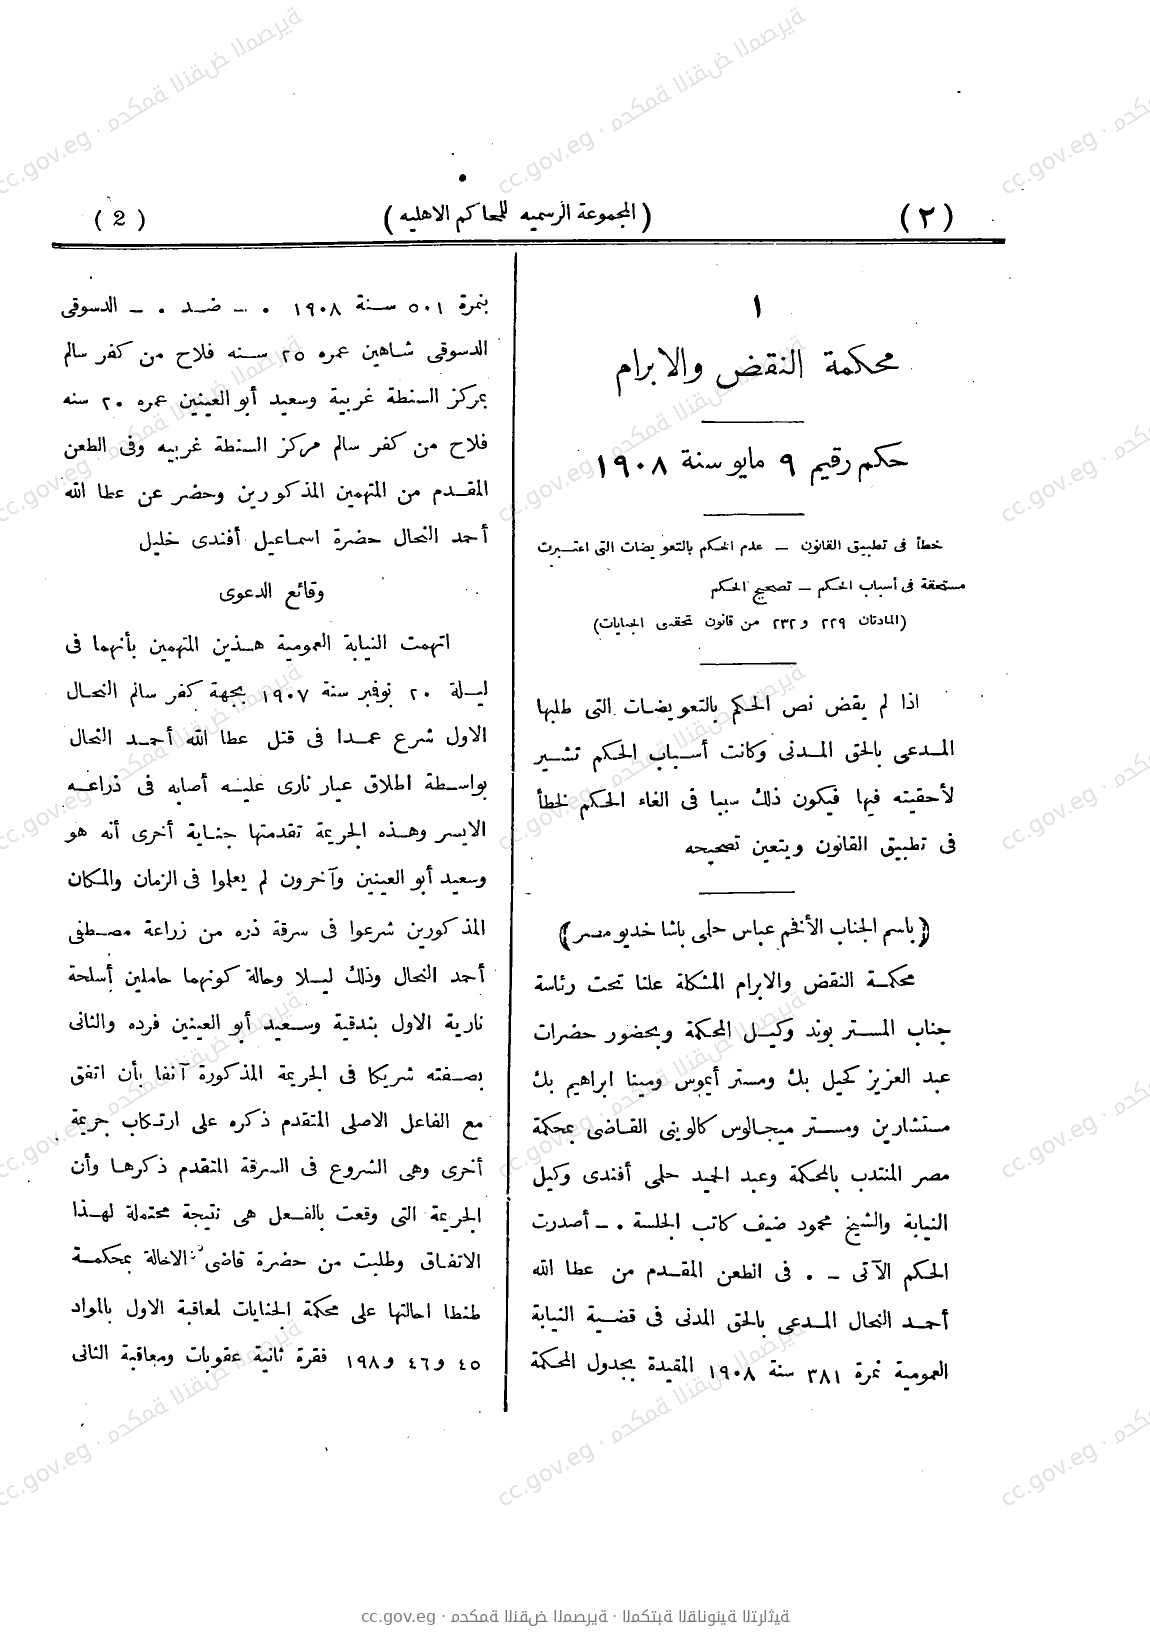 (٢)
(المجموعة الرسميه للمحاكم الاهليه)
( 2 )
١
محكمة النقض والابرام
حكم رقيم ٩ مايو سنة ١٩٠٨
خطأ فى تطبيق القانون – عدم الحكم بالتعويضات التى اعتبرت
مستحقة فى أسباب الحكم – تصحيح الحكم
(المادتان ٢٢٩ و ٢٣٢ من قانون تحقيق الجنايات)
اذا لم يقض نص الحكم بالتعويضات التى طلبها
المدعى بالحق المدنى وكانت أسباب الحكم تشير
لأحقيته فيها فيكون ذلك سببا فى الغاء الحكم لخطأ
فى تطبيق القانون ويتعين تصحيحه
(باسم الجناب الأفخم عباس حلمى باشا خديو مصر)
محكمة النقض والابرام المشكلة علنا تحت رئاسة
جناب المستر بوند وكيل المحكمة وبحضور حضرات
عبد العزيز كحيل بك ومستر أيموس ومينا ابراهيم بك
مستشارين ومستر ميجالوس كالوينى القاضى بمحكمة
مصر المنتدب بالمحكمة وعبد الحميد حلمى أفندى وكيل
النيابة والشيخ محمود ضيف كاتب الجلسة . – أصدرت
الحكم الآتى – . فى الطعن المقدم من عطا الله
أحمد النحال المدعى بالحق المدنى فى قضية النيابة
العمومية نمرة ٣٨١ سنة ١٩٠٨ المقيدة بجدول المحكمة
بنمرة ٥٠١ سنة ١٩٠٨ . – ضد . – الدسوقى
الدسوقى شاهين عمره ٢٥ سنه فلاح من كفر سالم
بمركز السنطة غربية وسعيد أبو العينين عمره ٢٠ سنه
فلاح من كفر سالم مركز السنطة غربيه وفى الطعن
المقدم من المتهمين المذكورين وحضر عن عطا الله
أحمد النحال حضرة اسماعيل أفندى خليل
وقائع الدعوى
اتهمت النيابة العمومية هذين المتهمين بأنهما فى
ليلة ٢٠ نوفمبر سنة ١٩٠٧ بجهة كفر سالم النحال
الاول شرع عمدا فى قتل عطا الله أحمد النحال
بواسطة اطلاق عيار نارى عليه أصابه فى ذراعه
الايسر وهذه الجريمة تقدمتها جناية أخرى أنه هو
وسعيد أبو العينين وآخرون لم يعلموا فى الزمان والمكان
المذكورين شرعوا فى سرقة ذره من زراعة مصطفى
أحمد النحال وذلك ليلا وحالة كونهما حاملين أسلحة
نارية الاول بندقية وسعيد أبو العينين فرده والثانى
بصفته شريكا فى الجريمة المذكورة آنفا بأن اتفق
مع الفاعل الاصلى المتقدم ذكره على ارتكاب جريمة
أخرى وهى الشروع فى السرقة المتقدم ذكرها وأن
الجريمة التى وقعت بالفعل هى نتيجة محتملة لهذا
الاتفاق وطلبت من حضرة قاضى الاحالة بمحكمة
طنطا احالتها على محكمة الجنايات لمعاقبة الاول بالمواد
٤٥ و ٤٦ و ١٩٨ فقرة ثانية عقوبات ومعاقبة الثانى
cc.gov.eg · محكمة النقض المصرية · المكتبة القانونية التراثية